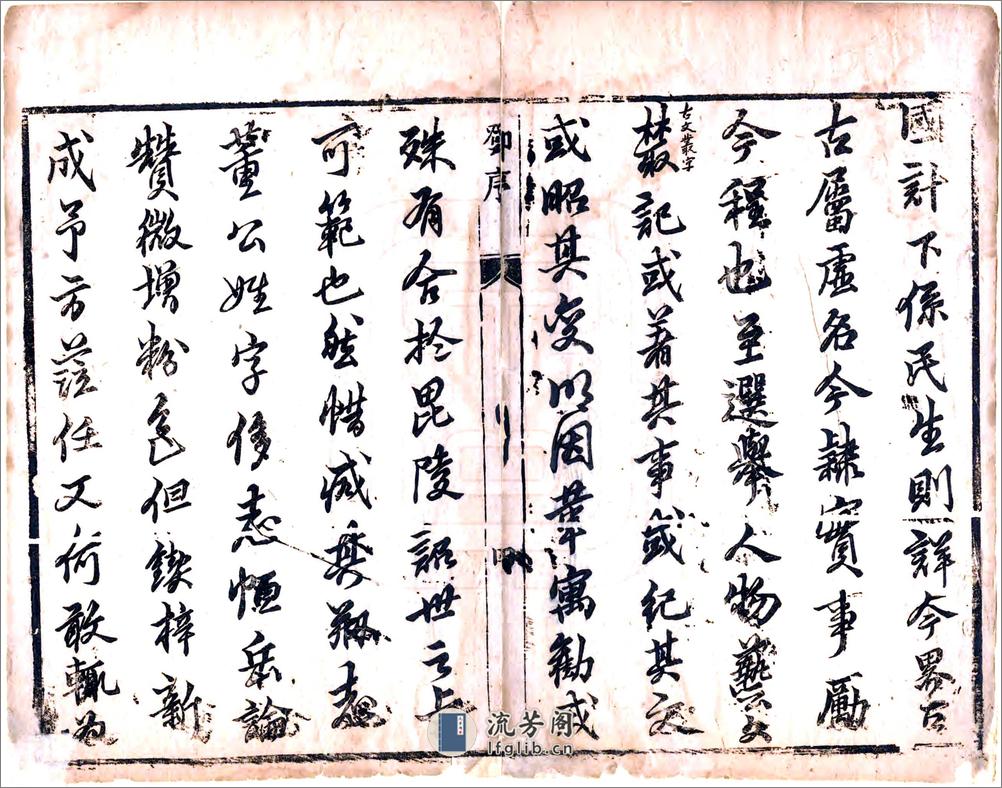 國計下係民生則詳今畧古
古屬虛名今隸實事勵
今程也至選舉人物藝文
古文叢字
藂記或著其事或紀其文
或昭其變以因革寓勸戒
鄧序
殊有合於毘陵詔世之上
可範也然惜咸與
董公姓字修志恒岳論
贊微增粉色但鍥梓新
成予方蒞任又何敢輒為
流芳阁
lfglib.cn